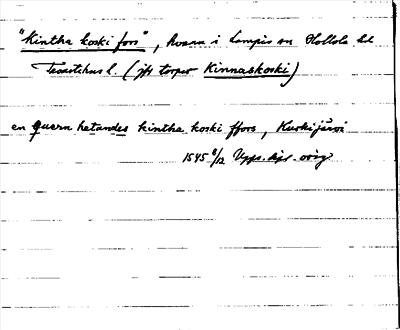 "Kintha koski fors", kvarn i Lampis sn Hollola hd
Tavastehus l. (jfr torpet Kinnaskoski)
en quern hetandes kintha koski ffors, Kurkijärvi
1545 8/12 Upps. dipl. orig